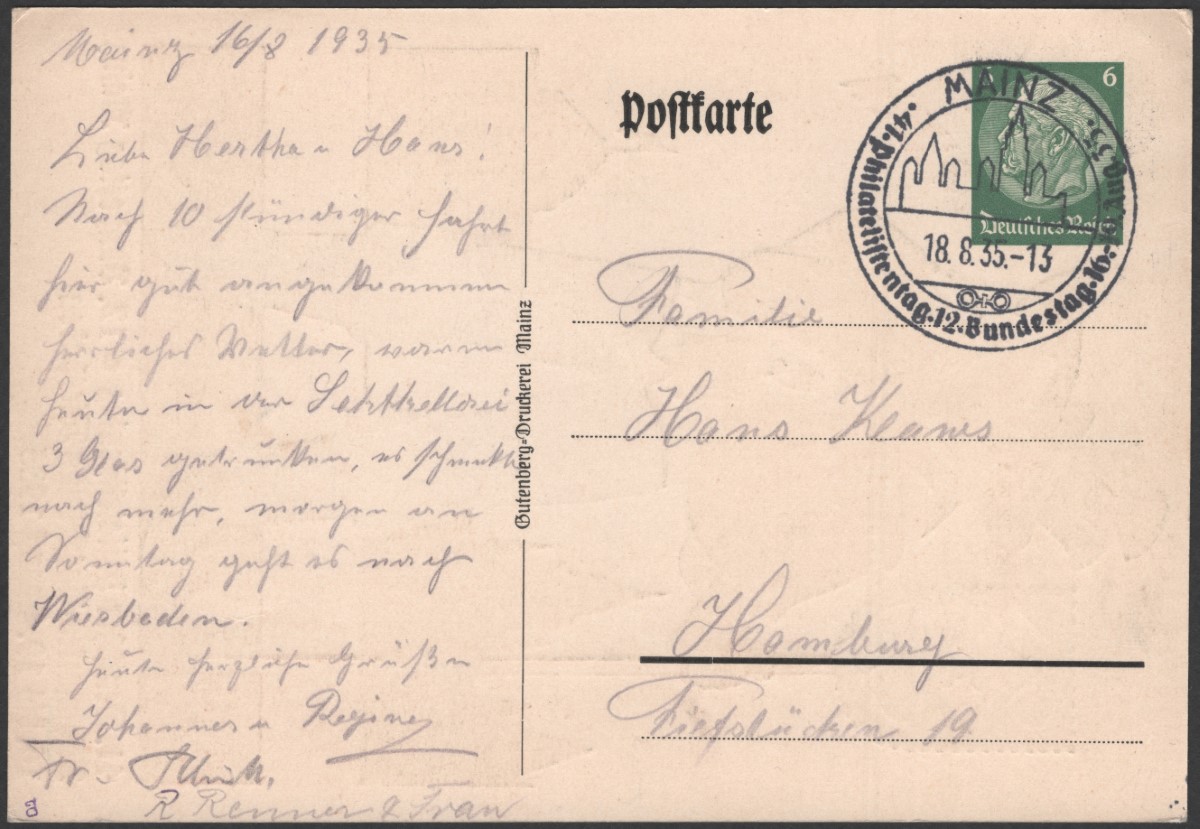 Mainz 16/8 1935
Liebe Hertha u Hans!
Nach 10 stündiger Fahrt
hier gut angekommen
herrliches Wetter, waren
heute in der Sektkellerei
3 Glas getrunken, es schmekt
nach mehr, morgen am
Sonntag geht es nach
Wiesbaden.
heute herzliche Grüße
Johannes u Regine
Fr.
R Renner & Frau
02
Gutenberg-Druckerei Mainz
Poſtkarte
6
Deutſches Reich
MAINZ
41. Philatelistentag. 12. Bundestag. 16.-19. Aug. 35.
18.8.35.-13
Familie
Hans Klaws
Hamburg
Tiefstücken 19